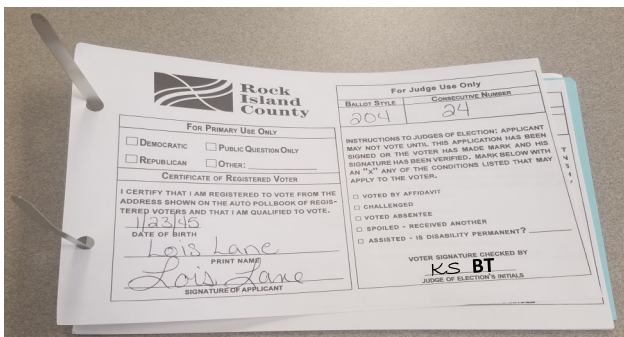 Rock
Island
County
FOR PRIMARY USE ONLY
DEMOCRATIC PUBLIC QUESTION ONLY
REPUBLICAN OTHER:
CERTIFICATE OF REGISTERED VOTER
I CERTIFY THAT I AM REGISTERED TO VOTE FROM THE
ADDRESS SHOWN ON THE AUTO POLLBOOK OF REGIS-
TERED VOTERS AND THAT I AM QUALIFIED TO VOTE.
1/23/45
DATE OF BIRTH
Lois Lane
PRINT NAME
Lois Lane
SIGNATURE OF APPLICANT
For Judge Use Only
BALLOT STYLE CONSECUTIVE NUMBER
204 24
INSTRUCTIONS TO JUDGES OF ELECTION: APPLICANT
MAY NOT VOTE UNTIL THIS APPLICATION HAS BEEN
SIGNED OR THE VOTER HAS MADE MARK AND HIS
SIGNATURE HAS BEEN VERIFIED. MARK BELOW WITH
AN "X" ANY OF THE CONDITIONS LISTED THAT MAY
APPLY TO THE VOTER.
VOTED BY AFFIDAVIT
CHALLENGED
VOTED ABSENTEE
SPOILED - RECEIVED ANOTHER
ASSISTED - IS DISABILITY PERMANENT?
VOTER SIGNATURE CHECKED BY
KS BT
JUDGE OF ELECTION'S INITIALS